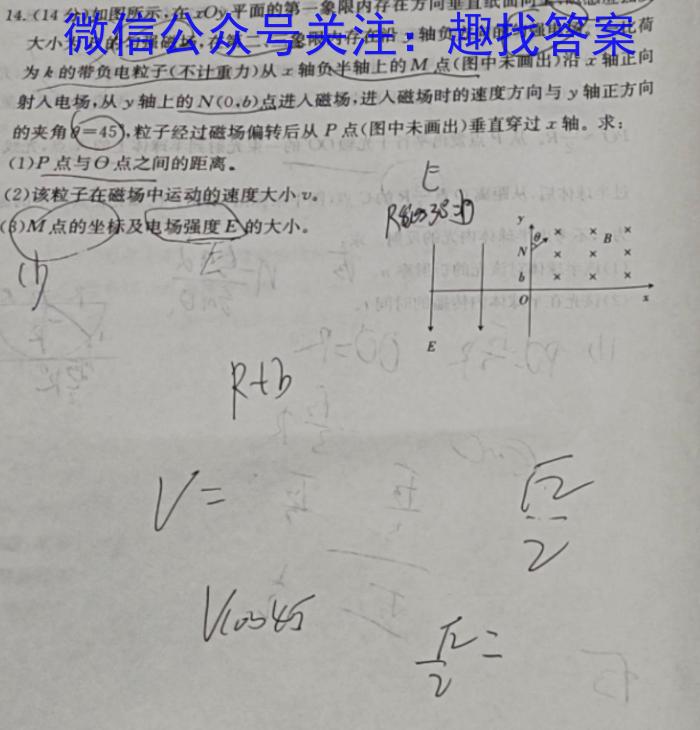 14.(14分)如图所示,在xOy平面的第一象限内存在方向垂直纸面向
微信公众号关注：趣找答案
大小为
为k的带负电粒子(不计重力)从x轴负半轴上的M点(图中未画出)沿x轴正向
射入电场,从y轴上的N(0,b)点进入磁场,进入磁场时的速度方向与y轴正方向
的夹角θ=45°,粒子经过磁场偏转后从P点(图中未画出)垂直穿过x轴。求:
(1)P点与O点之间的距离。
(2)该粒子在磁场中运动的速度大小v。
(3)M点的坐标及电场强度E的大小。
E
(1)
y
θ
B
N
b
O
x
E
R+b
V=
√2
2
Vcos45
√2
2
=